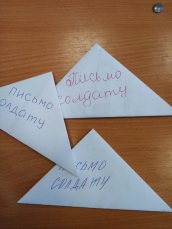 Письмо
солдату
письмо
солдату
письмо
солдату